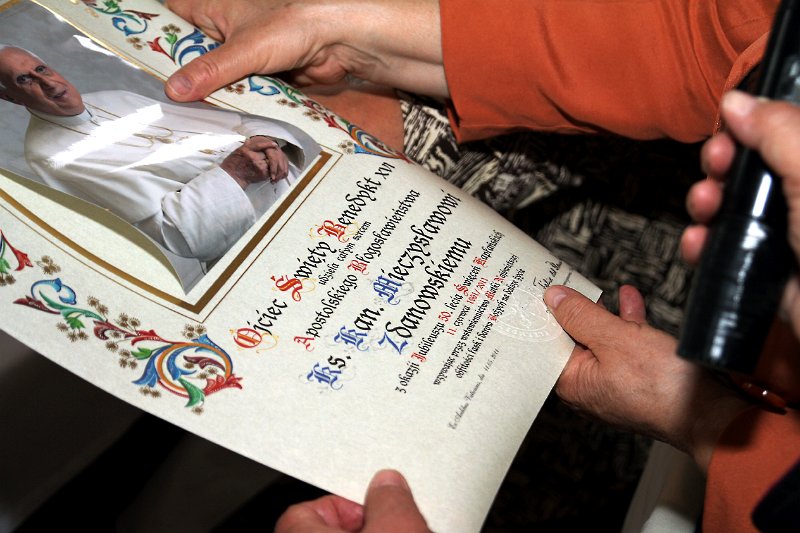 Ojciec Święty Benedykt XVI
udziela całym sercem
Apostolskiego Błogosławieństwa
Ks. Kan. Mieczysławowi
Zdanowskiemu
z okazji Jubileuszu 50. lecia Święceń Kapłańskich
11. czerwca 1961/2011
wzywając przez wstawiennictwo Matki Najświętszej
obfitości łask i darów Bożych na dalszy życie